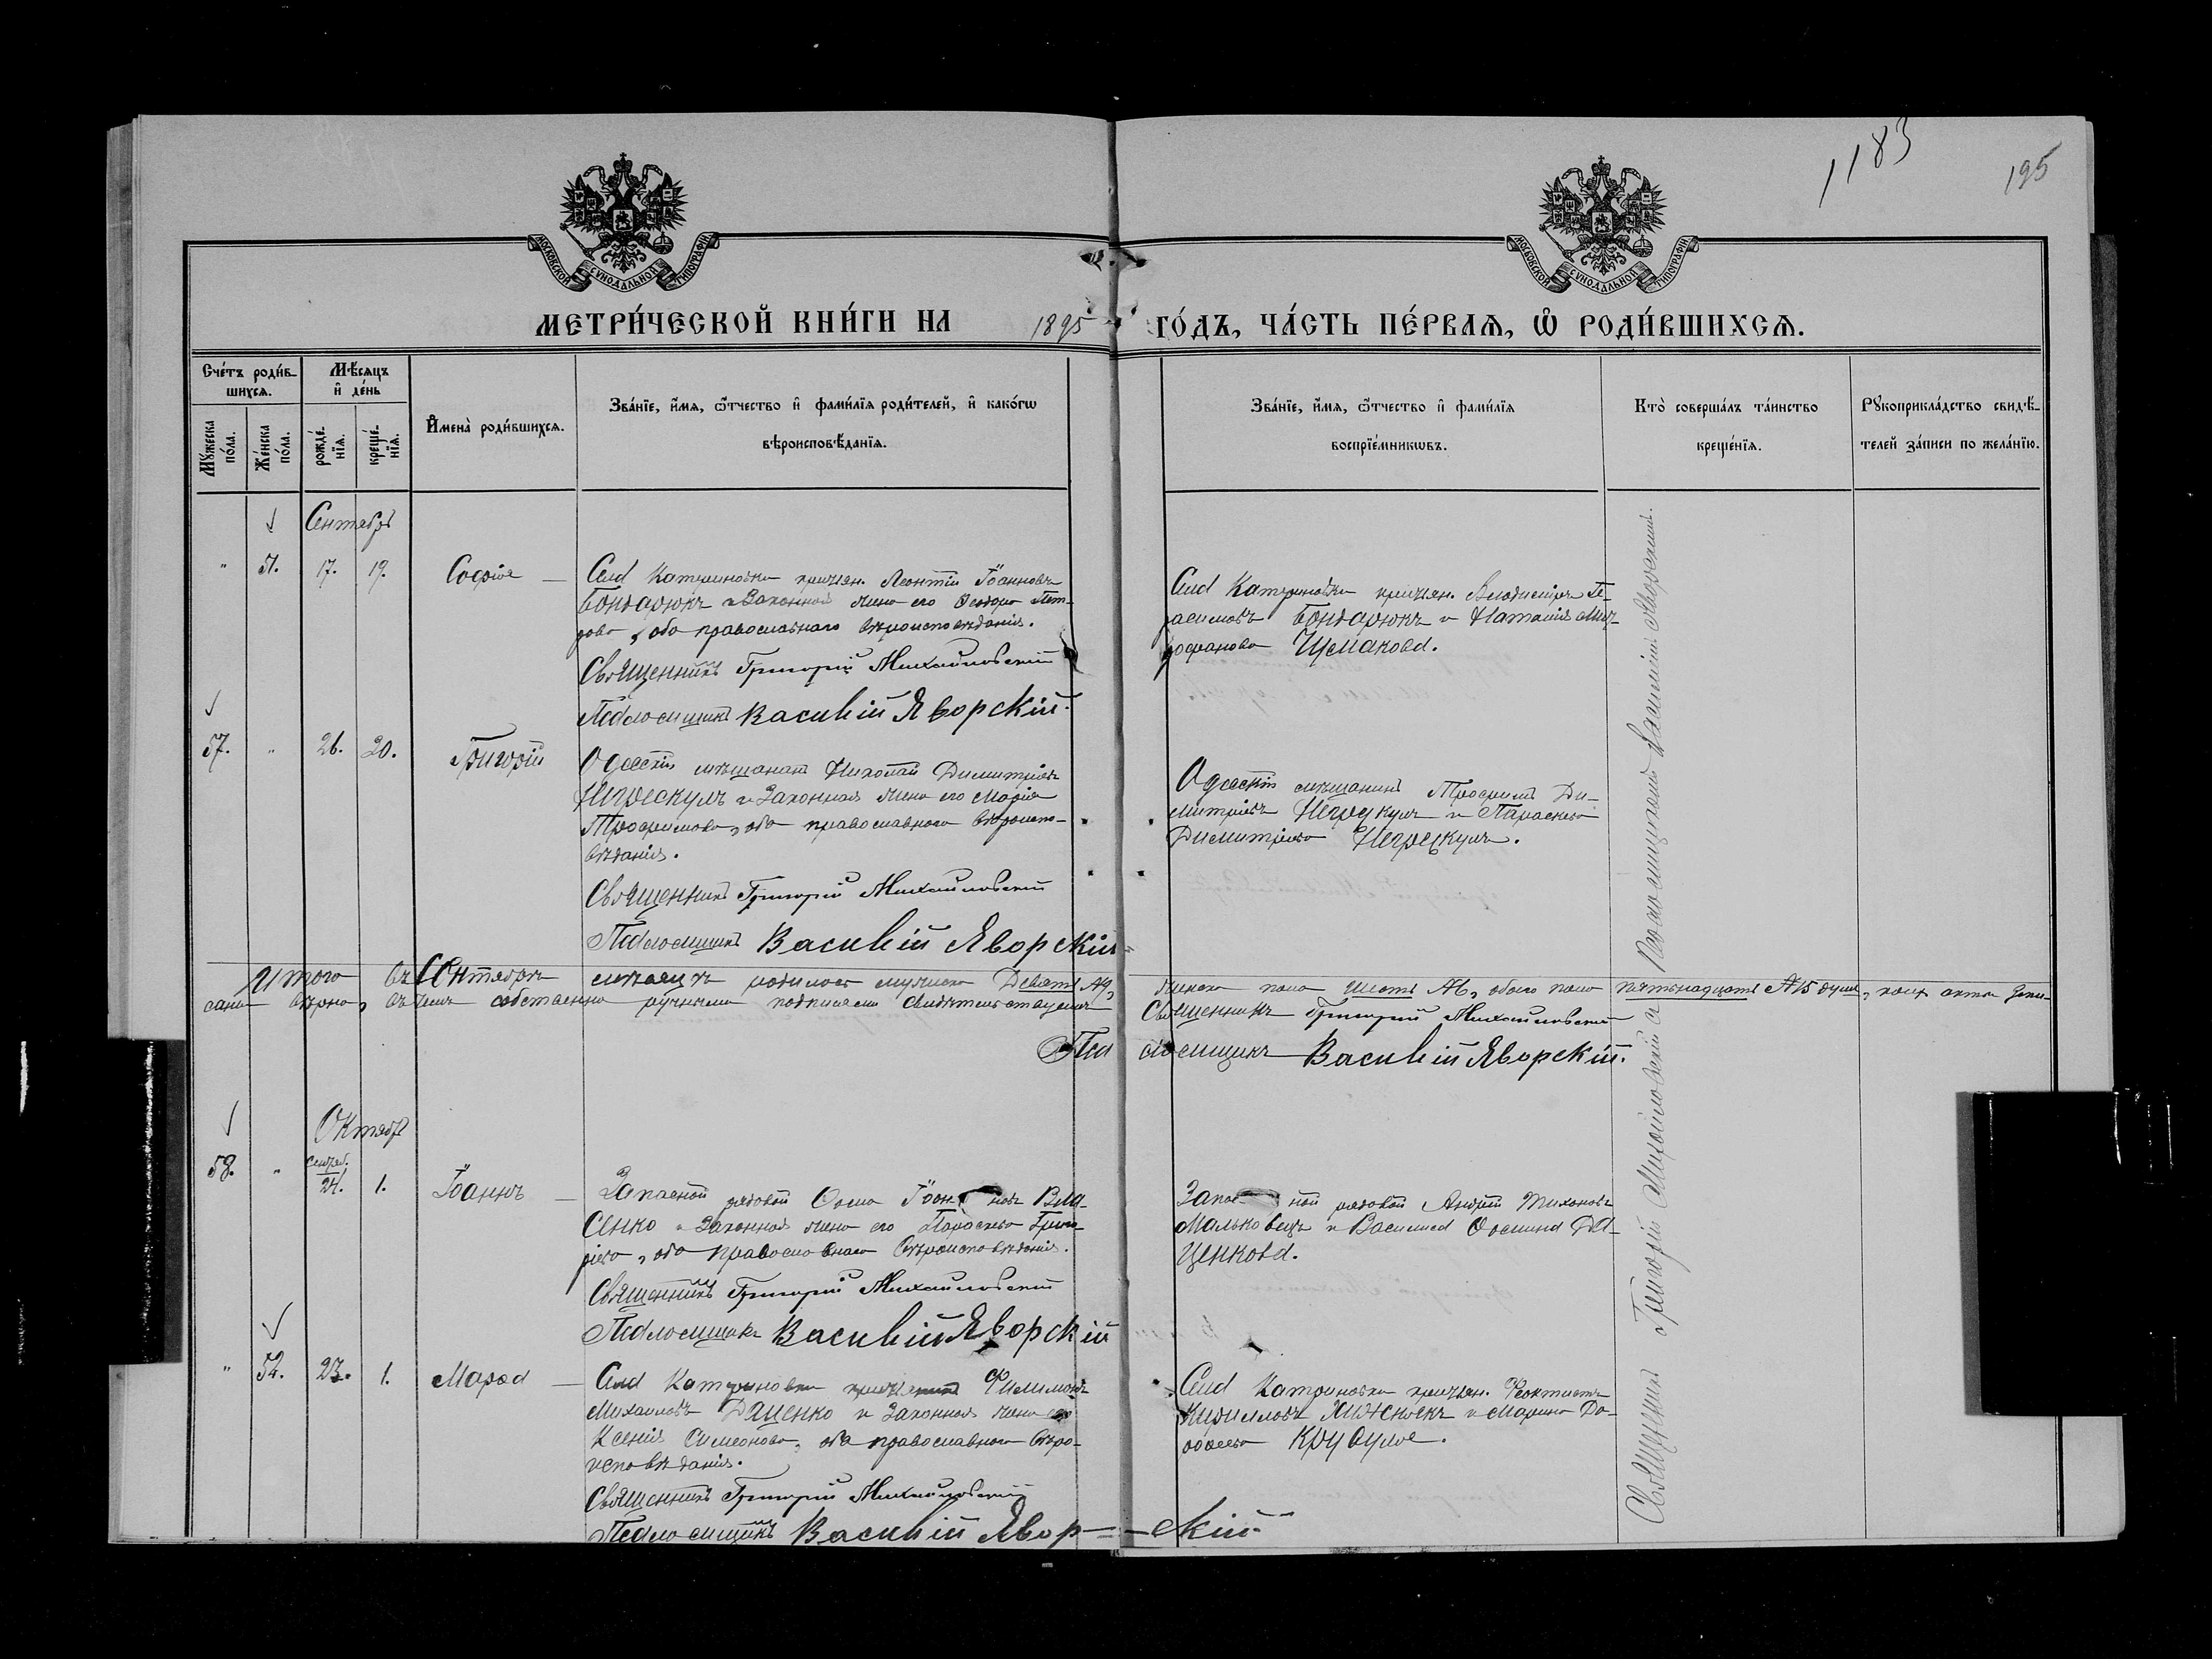 1183
195
МОСКОВСКОЙ СѴНОДАЛЬНОЙ ТИПОГРАФІИ
МОСКОВСКОЙ СѴНОДАЛЬНОЙ ТИПОГРАФІИ
МЕТРИ́ЧЕСКОЙ КНИ́ГИ НА 1895 ГО́ДЪ, ЧА́СТЬ ПЕ́РВАѦ, Ѽ РОДИ́ВШИХСѦ.
Сче́тъ роди́в-
шихсѧ.
Мꙋ́жеска по́ла.
Же́нска по́ла.
Мѣ́сѧцъ
и҆ де́нь
рожде́-
нїѧ.
креще́-
нїѧ.
И҆мена̀ роди́вшихсѧ.
Зва́нїе, и҆́мѧ, ѻ҆́тчество и҆ фами́лїѧ роди́телей, и҆ како́гѡ
вѣроисповѣ́данїѧ.
Зва́нїе, и҆́мѧ, ѻ҆́тчество и҆ фами́лїѧ
воспрїе́мникѡвъ.
Кто̀ соверша́лъ та́инство
креще́нїѧ.
Рꙋкоприкла́дство свидѣ́-
телей за́писи по жела́нїю.
Сентябрь
" 51. 17. 19. Софія — Села Катериновки крестьян. Леонтій Іоанновъ
Бондарюкъ и Законная жена его Ѳеодора Пет-
рова, оба православнаго вѣроисповѣданія.
Священникъ Григорій Михайловскій
Псаломщикъ Василій Яворскій.
Села Катериновки крестьян. Владиміръ Ге-
расимовъ Бондарюкъ и Наталія Мит-
рофанова
57. " 26. 30. Григорій Одесскій мѣщанинъ Николай Димитріевъ
Негрескулъ и Законная жена его Марія
Трофимова, оба православнаго вѣроиспо-
вѣданія.
Священникъ Григорій Михайловскій
Псаломщикъ Василій Яворскій
Одесскій мѣщанинъ Трофимъ Ди-
митріевъ Негрескулъ и Параскева
Димитріева Негрескулъ.
Итого въ Сентябрѣ мѣсяцѣ родилось мужеска Девять №9, женска пола шесть №6, обоего пола пятьнадцать №15 душъ, коихъ актъ запи-
санъ вѣрно, въ чемъ собственно ручными подписями свидѣтельствуемъ
Священникъ Григорій Михайловскій
Псаломщикъ Василій Яворскій.
Октябрь
58. " сентяб. 24. 1. Іоаннъ — Запасной рядовой Ѳома Іоанновъ Вла-
сенко и Законная жена его Параскева Григо-
ріева, оба православнаго вѣроисповѣданія.
Священникъ Григорій Михайловскій
Псаломщикъ Василій Яворскій
Запасной рядовой Андрей Тихоновъ
Мальковецъ и Василиса Ѳомина Да-
ценкова.
" 52. 23. 1. — Села Катериновки крестьянинъ Филимонъ
Михаиловъ Даценко и Законная жена его
Ксенія Симеонова, оба православнаго вѣро-
исповѣданія.
Священникъ Григорій Михайловскій
Псаломщикъ Василій Яворскій
Села Катриновки крестьян. Ѳеоктистъ
Кирилловъ и Марина До-
роѳеева
Священникъ Григорій Михайловскій съ псаломщикомъ Василіемъ Яворскимъ.